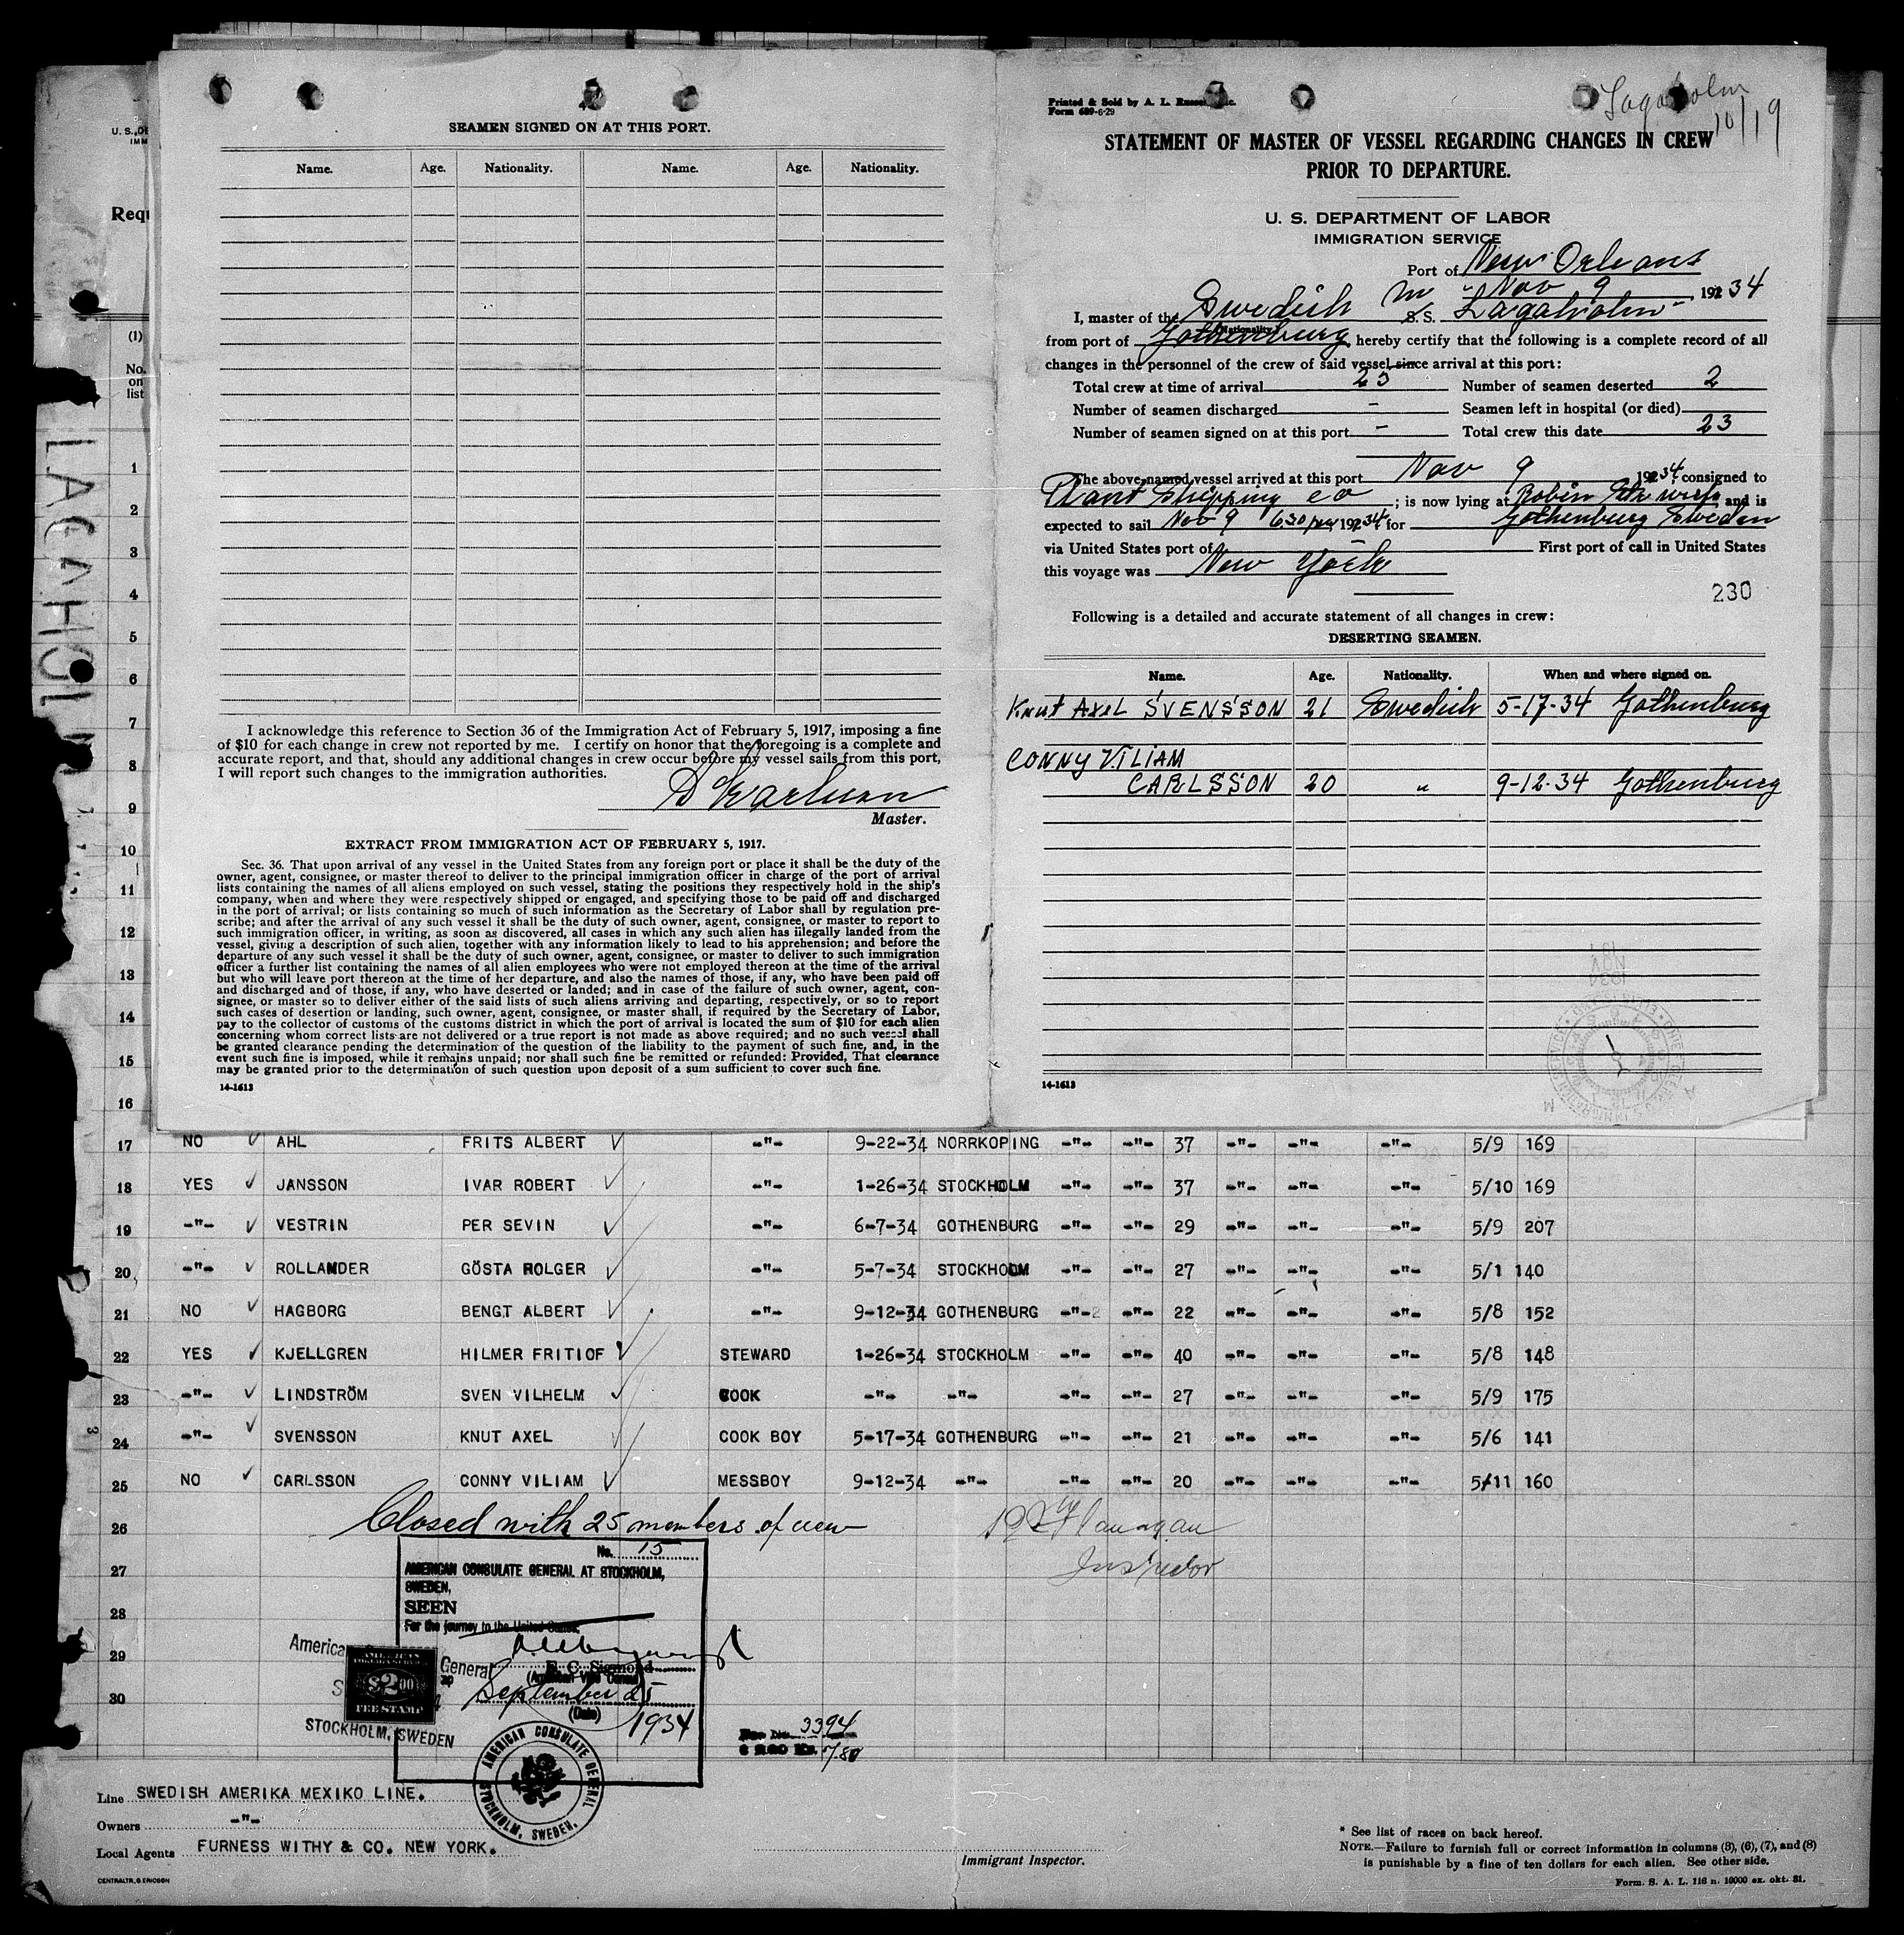 4
SEAMEN SIGNED ON AT THIS PORT.
Name. Age. Nationality. Name. Age. Nationality.
I acknowledge this reference to Section 36 of the Immigration Act of February 5, 1917, imposing a fine
of $10 for each change in crew not reported by me. I certify on honor that the foregoing is a complete and
accurate report, and that, should any additional changes in crew occur before my vessel sails from this port,
I will report such changes to the immigration authorities.
Master.
EXTRACT FROM IMMIGRATION ACT OF FEBRUARY 5, 1917.
Sec. 36. That upon arrival of any vessel in the United States from any foreign port or place it shall be the duty of the
owner, agent, consignee, or master thereof to deliver to the principal immigration officer in charge of the port of arrival
lists containing the names of all aliens employed on such vessel, stating the positions they respectively hold in the ship's
company, when and where they were respectively shipped or engaged, and specifying those to be paid off and discharged
in the port of arrival; or lists containing so much of such information as the Secretary of Labor shall by regulation pre-
scribe; and after the arrival of any such vessel it shall be the duty of such owner, agent, consignee, or master to report to
such immigration officer, in writing, as soon as discovered, all cases in which any such alien has illegally landed from the
vessel, giving a description of such alien, together with any information likely to lead to his apprehension; and before the
departure of any such vessel it shall be the duty of such owner, agent, consignee, or master to deliver to such immigration
officer a further list containing the names of all alien employees who were not employed thereon at the time of the arrival
but who will leave port thereon at the time of her departure, and also the names of those, if any, who have been paid off
and discharged and of those, if any, who have deserted or landed; and in case of the failure of such owner, agent, con-
signee, or master so to deliver either of the said lists of such aliens arriving and departing, respectively, or so to report
such cases of desertion or landing, such owner, agent, consignee, or master shall, if required by the Secretary of Labor,
pay to the collector of customs of the customs district in which the port of arrival is located the sum of $10 for each alien
concerning whom correct lists are not delivered or a true report is not made as above required; and no such vessel shall
be granted clearance pending the determination of the question of the liability to the payment of such fine, and, in the
event such fine is imposed, while it remains unpaid; nor shall such fine be remitted or refunded: Provided, That clearance
may be granted prior to the determination of such question upon deposit of a sum sufficient to cover such fine.
14-1613
Printed & Sold by A. L. Russell, Inc.
Form 689-6-29
Lagaholm
10/19
STATEMENT OF MASTER OF VESSEL REGARDING CHANGES IN CREW
PRIOR TO DEPARTURE.
U. S. DEPARTMENT OF LABOR
IMMIGRATION SERVICE
Port of New Orleans
Nov 9, 192 34
I, master of the Swedish M S.S. Lagaholm
(Nationality)
from port of Gothenburg, hereby certify that the following is a complete record of all
changes in the personnel of the crew of said vessel since arrival at this port:
Total crew at time of arrival 25 Number of seamen deserted 2
Number of seamen discharged - Seamen left in hospital (or died)
Number of seamen signed on at this port - Total crew this date 23
The above-named vessel arrived at this port Nov 9, 192 34, consigned to
Plant Shipping co; is now lying at Robin and is
expected to sail Nov 9 630 pm, 192 34 for Gothenburg Sweden
via United States port of - First port of call in United States
this voyage was New York
230
Following is a detailed and accurate statement of all changes in crew:
DESERTING SEAMEN.
Name. Age. Nationality. When and where signed on.
Knut Axel SVENSSON 21 Swedish 5-17-34 Gothenburg
CONNY VILIAM
CARLSSON 20 " 9-12-34 Gothenburg
14-1613
U. S. DE
IMM
Requ
(1)
No.
on
list
LAGAHOLM
1
2
3
4
5
6
7
8
9
10
11
12
13
14
15
16
17 NO AHL FRITS ALBERT -"- 9-22-34 NORRKOPING -"- -"- 37 -"- -"- -"- 5/9 169
18 YES JANSSON IVAR ROBERT -"- 1-26-34 STOCKHOLM -"- -"- 37 -"- -"- -"- 5/10 169
19 -"- VESTRIN PER SEVIN -"- 6-7-34 GOTHENBURG -"- -"- 29 -"- -"- -"- 5/9 207
20 -"- ROLLANDER GÖSTA HOLGER -"- 5-7-34 STOCKHOLM -"- -"- 27 -"- -"- -"- 5/1 140
21 NO HAGBORG BENGT ALBERT -"- 9-12-34 GOTHENBURG -"- -"- 22 -"- -"- -"- 5/8 152
22 YES KJELLGREN HILMER FRITIOF STEWARD 1-26-34 STOCKHOLM -"- -"- 40 -"- -"- -"- 5/8 148
23 -"- LINDSTRÖM SVEN VILHELM COOK -"- -"- -"- -"- 27 -"- -"- -"- 5/9 175
24 -"- SVENSSON KNUT AXEL COOK BOY 5-17-34 GOTHENBURG -"- -"- 21 -"- -"- -"- 5/6 141
25 NO CARLSSON CONNY VILIAM MESSBOY 9-12-34 -"- -"- -"- 20 -"- -"- -"- 5/11 160
26 Closed with 25 members of crew Flanagan
27 Inspector
28
29
30
No. 15
AMERICAN CONSULATE GENERAL AT STOCKHOLM,
SWEDEN,
SEEN
For the journey to the United States.
(American Vice Consul)
September 25
(Date)
1934
American General
AMERICAN
$2.00
FEE STAMP
STOCKHOLM, SWEDEN
AMERICAN CONSULATE GENERAL
STOCKHOLM, SWEDEN.
No. 3394
Line SWEDISH AMERIKA MEXIKO LINE.
Owners -"-
Local Agents FURNESS WITHY & CO. NEW YORK.
CENTRALTR, G ERICSON
Immigrant Inspector.
* See list of races on back hereof.
NOTE.—Failure to furnish full or correct information in columns (3), (6), (7), and (8)
is punishable by a fine of ten dollars for each alien. See other side.
Form. S. A. L. 116 n. 10000 ex. okt. 31.